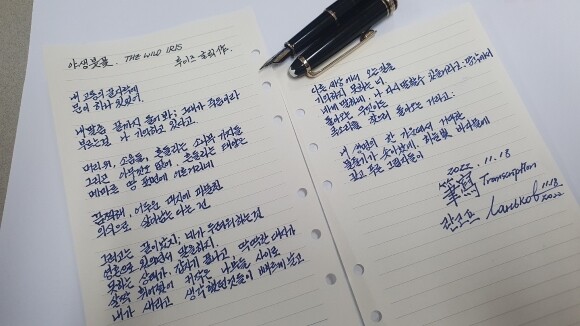 야생붓꽃. THE WILD IRIS
루이즈 글릭 作.
내 고통의 끝자락에
문이 하나 있었어.
내 말을 끝까지 들어봐: 그대가 죽음이라
부르는걸 나 기억하고 있다고.
머리 위, 소음들, 흔들리는 소나무 가지들
그리곤 아무것도 없어. 흔들리는 태양은
메마른 땅 표면에 어른거리네
끔찍해, 어두운 대지에 파묻힌
의식으로 살아남는 다는 건
그리고는 끝이 났지; 네가 두려워 하는 것
영혼으로 있으면서 말을 하지
못하는 상태가, 갑자기 끝나고, 딱딱한 대지가
살짝 휘어졌어. 키작은 나무들 사이로
내가 새라고 생각했던 것들이 빠르게 날고
다른 세상에서 오는 길을
기억하지 못하는 너,
네게 말하네, 나 다시 말할 수 있을거라고: 망각에서
돌아오는 것은
목소리를 찾으러 돌아오는 거라고:
내 생명의 한 가운데에서 거대한
물줄기가 솟아났네, 하늘빛 바다물에
깊고 푸른 그림자들이
2022. 11. 18
筆寫 Transcription
Ланьков 11.18
2022